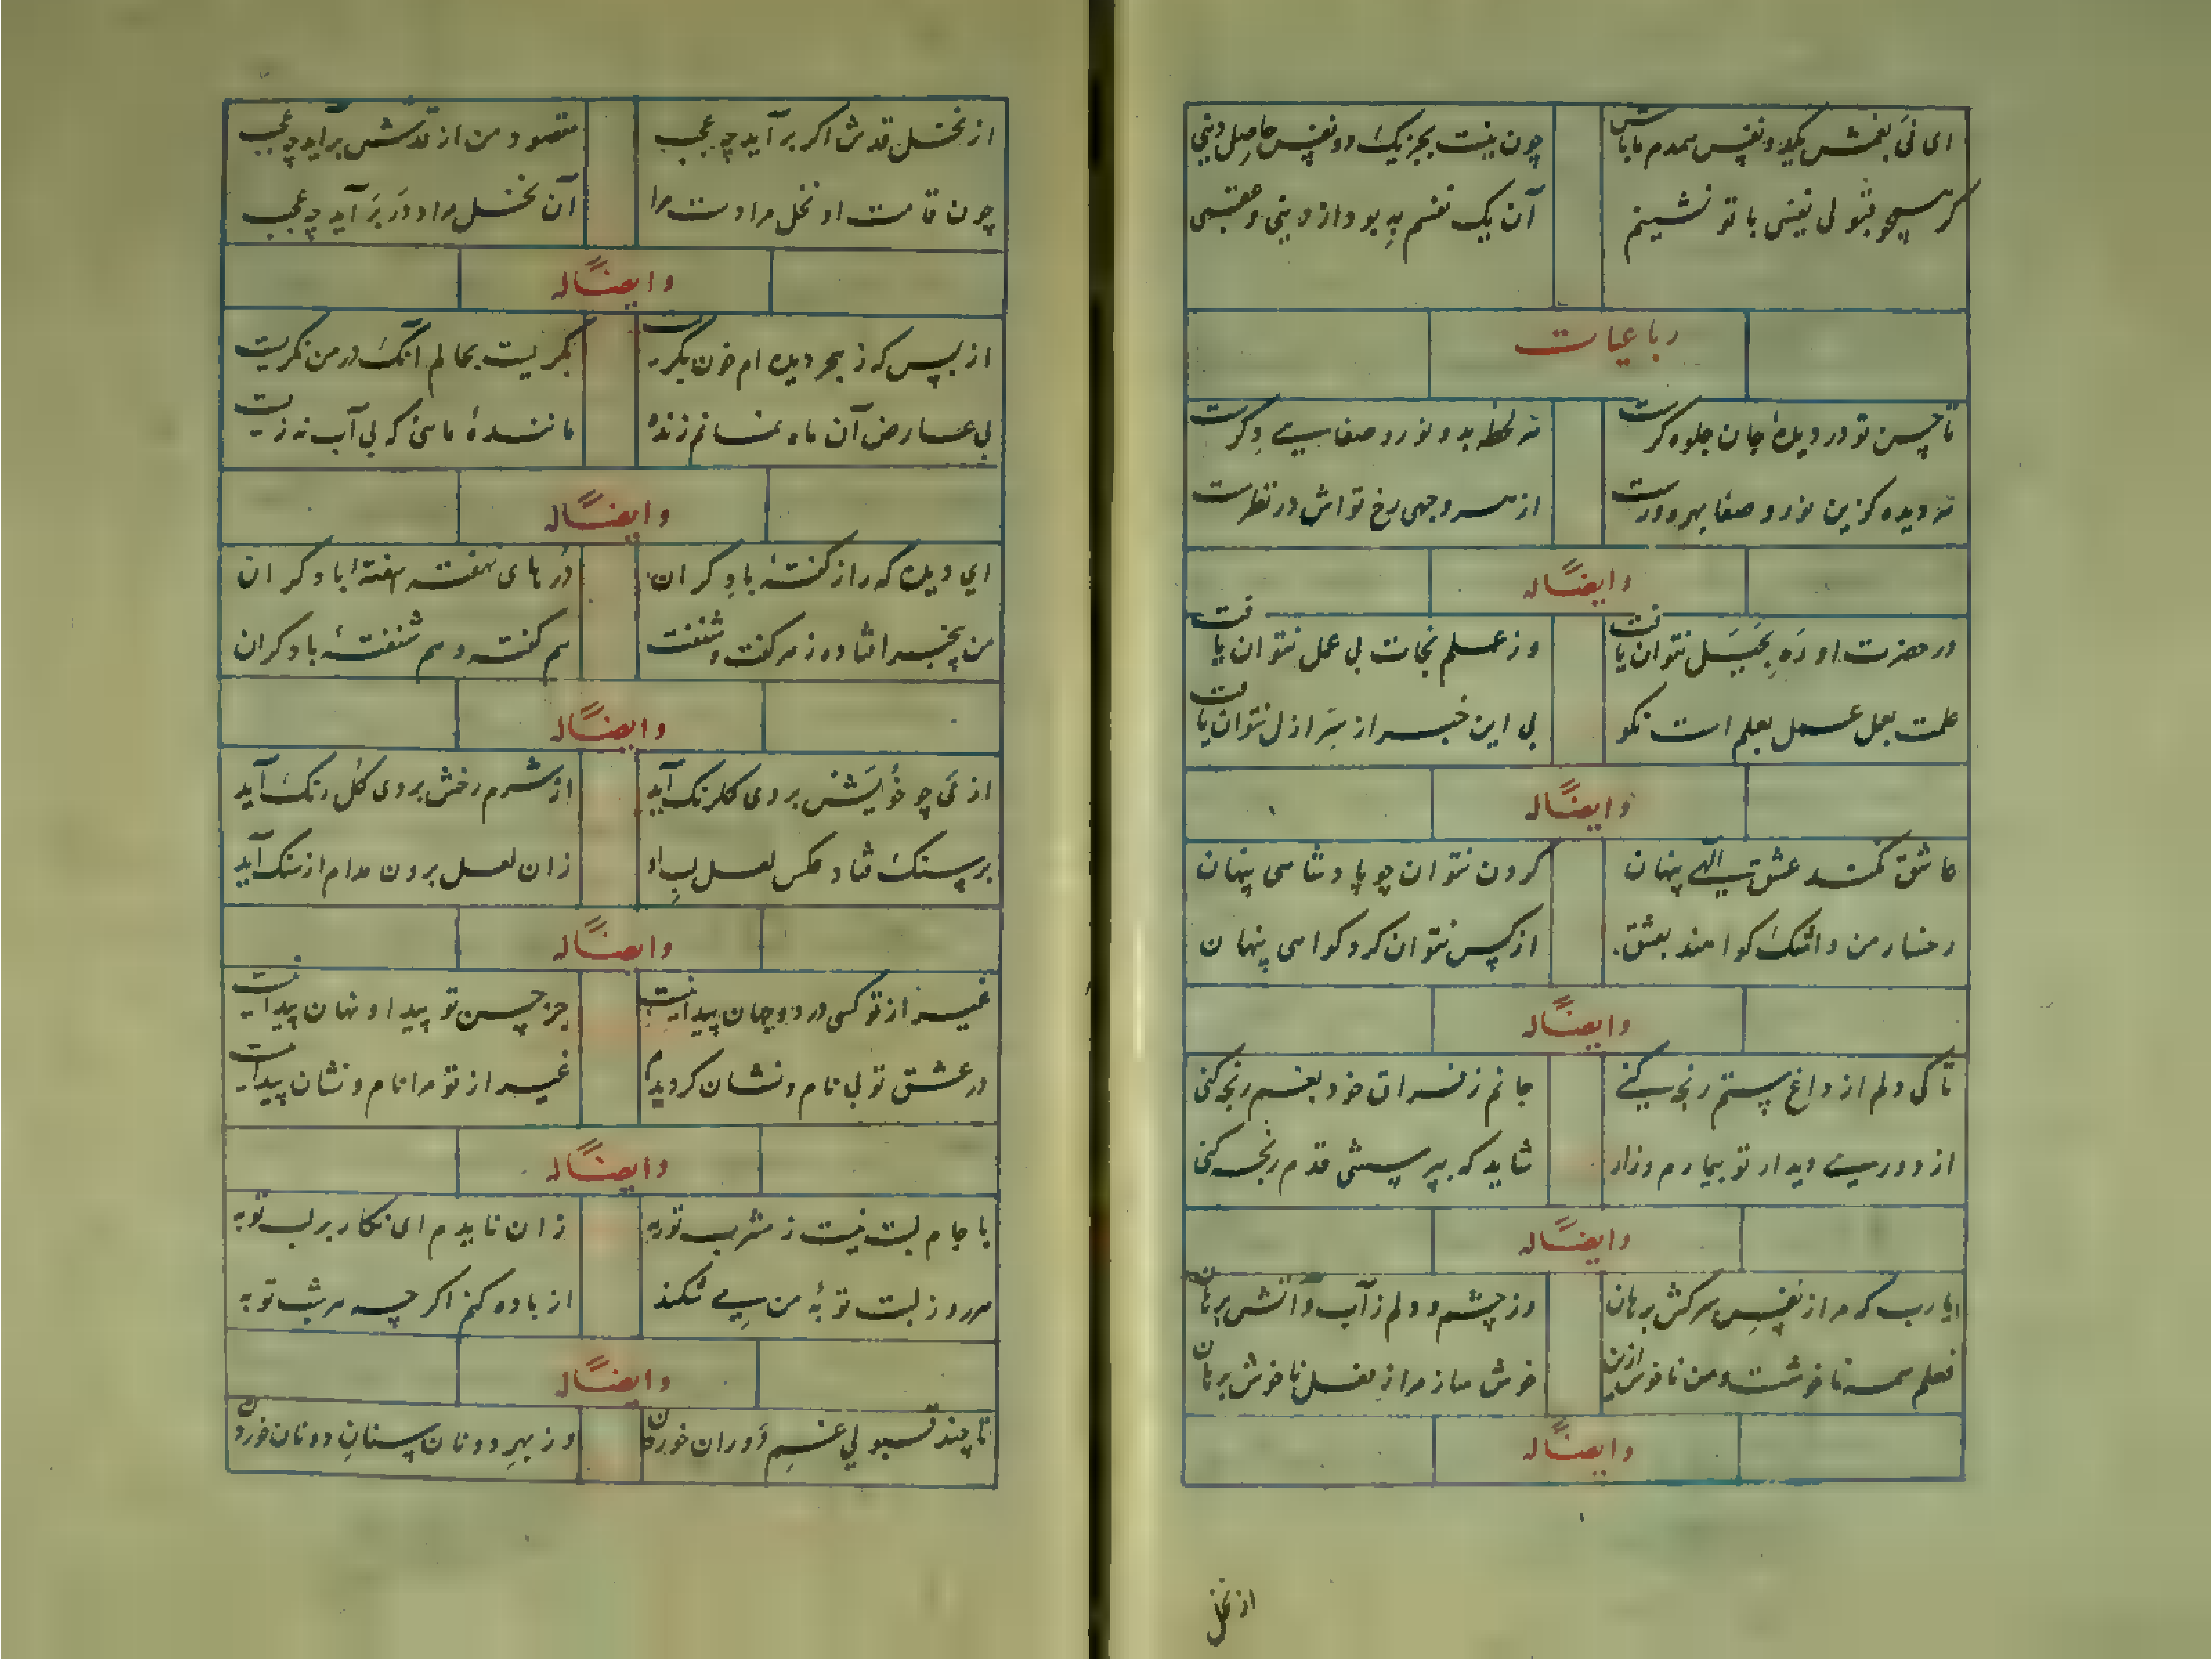 ای نی بغمش یکدو نفس همدم ما باش
چون نیست بجز یک دو نفس حاصل دنیی
گر همچو قبولی نفسی با تو نشینم
آن یک نفسم به بود از دنیی و عقبی
رباعیات
تا حسن تو در دیدهٔ جان جلوه کرست
نه لحظه بدو نور و صفایی دکرست
نه دیده کزین نور و صفا بهره ورست
از سر وجهی رخ تواش در نظرست
وایضًا له
در حضرت او ره بحیل نتوان یافت
وز علم نجات بی عمل نتوان یافت
علمت بعمل عمل بعلم است نکو
بی این خبر از سر ازل نتوان یافت
وایضًا له
عاشق نکند عشق الهی پنهان
کردن نتوان چو پادشاهی پنهان
رخسار من و اشک کواهند بعشق
از کس نتوان کرد کواهی پنهان
وایضًا له
تا کی دلم از داغ ستم رنجه کنی
جانم ز فراق خود بغم رنجه کنی
از دوری دیدار تو بیمارم و زار
شاید که بپرسشی قدم رنجه کنی
وایضًا له
یا رب که مرا ز نفس سرکش برهان
وز چشم و دلم ز آب و آتش برهان
فعلم همه ناخوشست و من ناخوش ازین
خوش ساز مرا ز فعل ناخوش برهان
وایضًا له
از نخل
از نخل قدش اکر بر آید چه عجب
مقصود من از قدش بر آید چه عجب
چون قامت او نخل مرادست مرا
آن نخل مراد در بر آید چه عجب
وایضًا له
از بس که ز هجر دیده ام خون بکریست
بکریست بحالم آنک در من نکریست
بی عارض آن ماه نمانم زنده
مانندهٔ ماهی که بی آب نزیست
وایضًا له
ای دیده که راز کفتهٔ با دکران
درهای نهفته سفتهٔ با دکران
من بیخبر افتاده ز هر کفت و شنفت
هم کفته و هم شنفتهٔ با دکران
وایضًا له
از می چو خویش بروی کلرنک آید
از شرم رخش بروی کل رنک آید
بر سنک فتاد عکس لعل لب او
زان لعل برون مدام از سنک آید
وایضًا له
غیر از تو کسی در دو جهان پیدا نیست
جز حسن تو پیدا و نهان پیدا نیست
در عشق تو بی نام و نشان کردیدم
غیر از تو مرا نام و نشان پیدا نیست
وایضًا له
با جام لبت نیست ز مشرب توبه
زان نایدم ای نکار بر لب توبه
هر روز لبت توبهٔ من می شکند
از باده کنم اکر چه هر شب توبه
وایضًا له
تا چند قبولی غم دوران خوردن
وز بهر دو نان سنان دونان خوردن